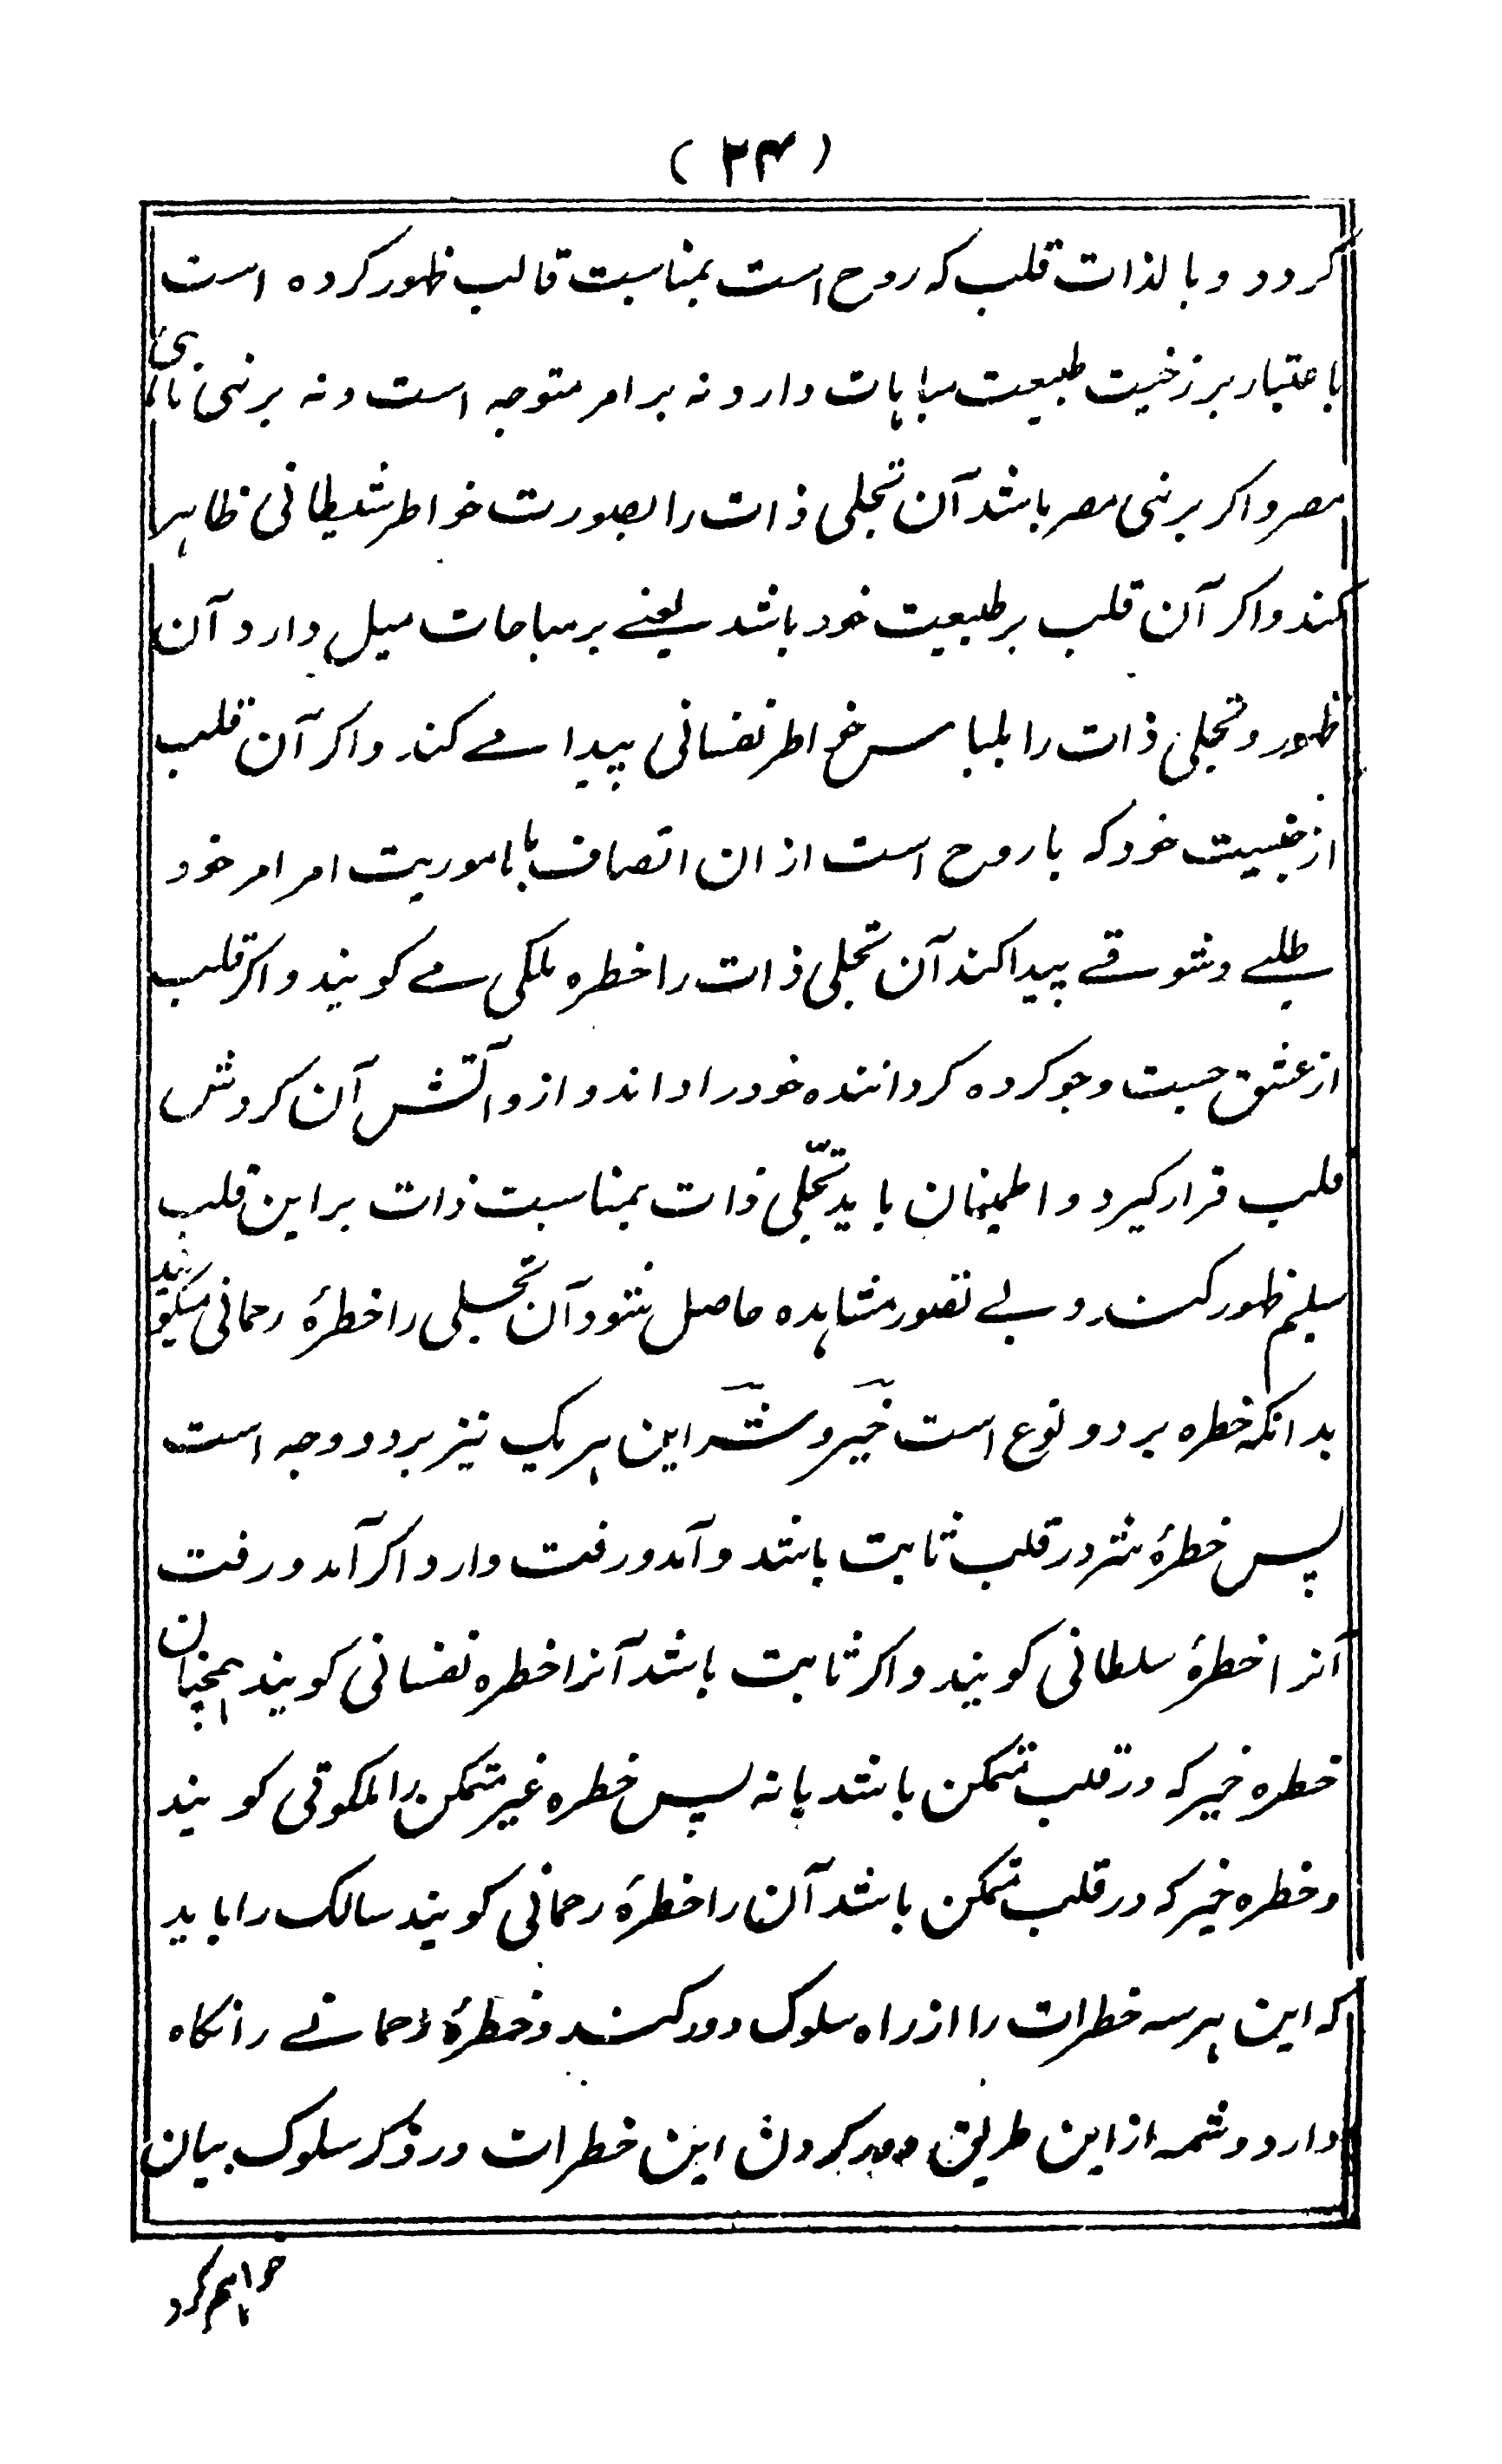 ( ۲۴ )
کردد و بالذات قلب که روح است بمناسبت قالب ظهور کرده است
باعتبار برزخیت طبیعت مباہات دارد نه برامر متوجه است و نه برنہی نائی
مصر و اکر برنہی مصر باشد آن تجلی ذات را بصورت خواطر شیطانی ظاہر
کند و اکر آن قلب بر طبیعت خود باشد یعنے بر مباحات میل دارد آن
ظهور و تجلی ذات را بلباس خواطر نفسانی پیدا مے کند و اکر آن قلب
از جنسیت خود که با روح است ازان اتصاف بامر امر خود
طلبے و شوقے پیدا کند آن تجلی ذات را خطره ملکی مے کویند و اکر قلب
از عشق جست و جو کرده کرداننده خود را داند و از و آتش آن کردش
قلب قرار کیرد و اطمینان یابد تجّلی ذات بمناسبت ذات بر این قلب
سلیم ظهور کند و بے تصور مشاہده حاصل شود آن تجلی را خطرۀ رحمانی میکویند
بدانکه خطره بر دو نوع است خیر و شر این ہر یک نیز بر دو وجه است
پس خطرۀ شر در قلب ثابت باشد و آمد و رفت دارد اکر آمد و رفت
آنرا خطرۀ سلطانی کویند و اکر ثابت باشد آنرا خطره نفسانی کویند ہمچنان
خطره خیر که در قلب متمکن باشد یا نه پس خطره غیر متمکن را ملکوتی کویند
و خطره خیر که در قلب متمکن باشد آن را خطرۀ رحمانی کویند سالک را باید
که این ہر سه خطرات را از راه سلوک دور کند و خطرۀ رحمانے را نکاه
دارد و شمه از این طریق دور کردن این خطرات در ذکر سلوک بیان
خواہم کرد